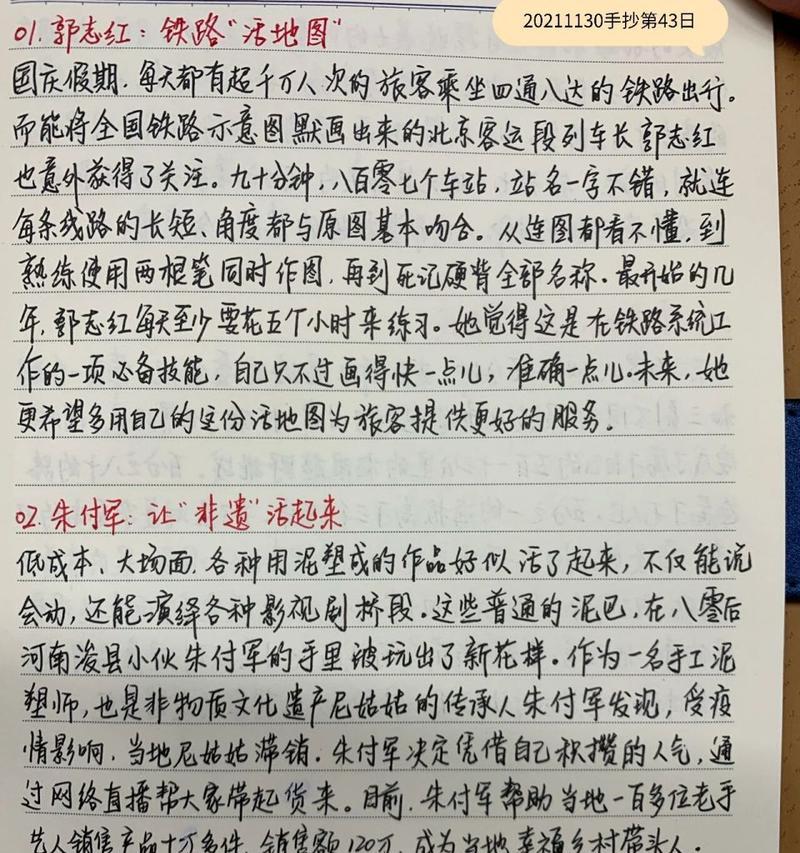 20211130手抄第43日
01. 郭志红：铁路“活地图”
国庆假期，每天都有超千万人次的旅客乘坐四通八达的铁路出行。
而能将全国铁路示意图默画出来的北京客运段列车长郭志红
也意外获得了关注。九十分钟，八百零七个车站，站名一字不错，就连
每条线路的长短、角度都与原图基本吻合。从连图都看不懂，到
熟练使用两根笔同时作图，再到死记硬背全部名称。最开始的几
年，郭志红每天至少要花五个小时来练习。她觉得这是在铁路系统工
作的一项必备技能，自己只不过画得快一点儿，准确一点儿。未来，她
更希望多用自己的这份活地图为旅客提供更好的服务。
02. 朱付军：让“非遗”活起来
低成本、大场面，各种用泥塑成的作品好似活了起来，不仅能说
会动，还能演绎各种影视剧桥段。这些普通的泥巴，在八零后
河南浚县小伙朱付军的手里被玩出了新花样。作为一名手工泥
塑师，也是非物质文化遗产尼姑姑的传承人朱付军发现，受疫
情影响，当地尼姑姑滞销。朱付军决定凭借自己积攒的人气，通
过网络直播帮大家带起货来。目前，朱付军帮助当地一百多位老手
艺人销售产品十万多件，销售额120万，成为当地幸福乡村带头人。